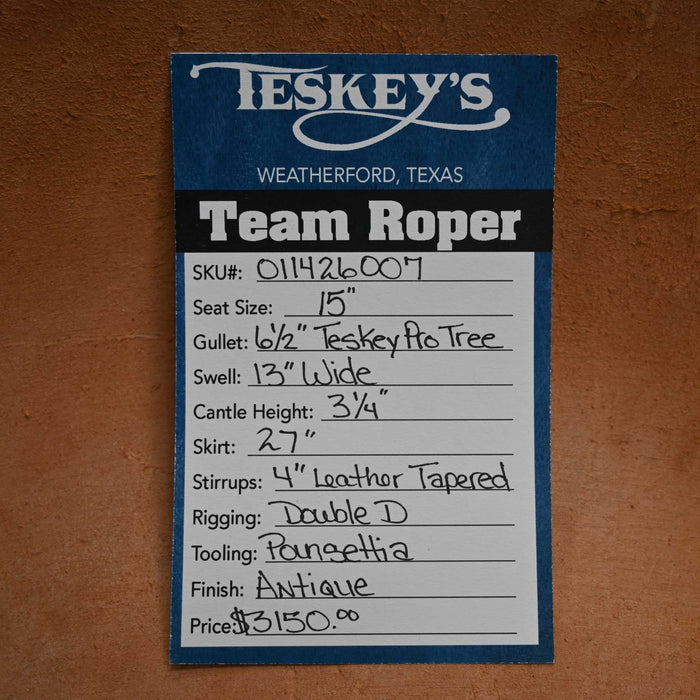 TESKEY'S
WEATHERFORD, TEXAS
Team Roper
SKU#: 011426007
Seat Size: 15"
Gullet: 6½" Teskey Pro Tree
Swell: 13" Wide
Cantle Height: 3¼"
Skirt: 27"
Stirrups: 4" Leather Tapered
Rigging: Double D
Tooling: Poinsettia
Finish: Antique
Price: $3150.00